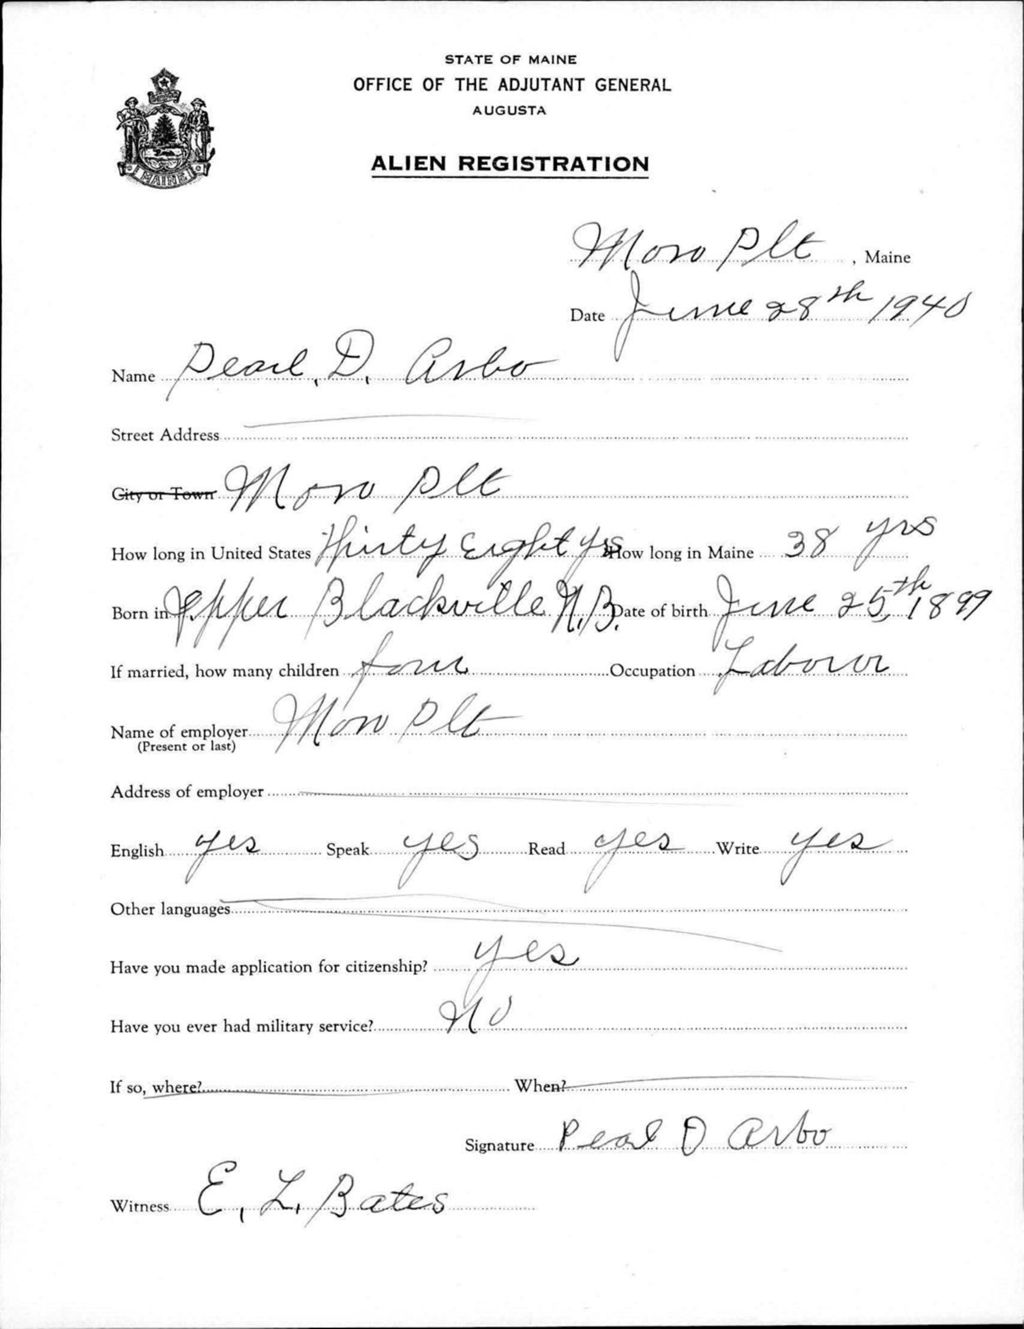 STATE OF MAINE
OFFICE OF THE ADJUTANT GENERAL
AUGUSTA
ALIEN REGISTRATION
MAINE
Moro Plt, Maine
Date June 28th 1940
Name Pearl, D. Arbo
Street Address
City or Town Moro Plt
How long in United States Thirty Eight Yrs How long in Maine 38 yrs
Born in Upper Blackville N.B. Date of birth June 25th, 1899
If married, how many children four Occupation Laboror
Name of employer Moro Plt
(Present or last)
Address of employer
English yes Speak yes Read yes Write yes
Other languages
Have you made application for citizenship? yes
Have you ever had military service? No
If so, where? When?
Signature Pearl D Arbo
Witness E. L. Bates